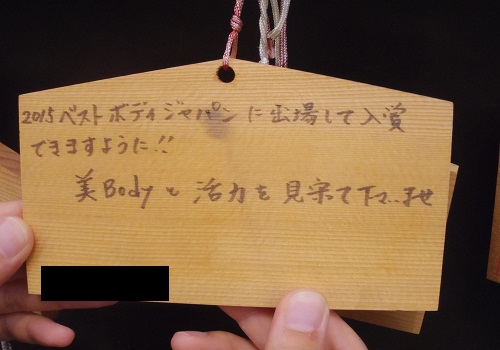 2015ベストボディジャパンに出場して入賞
できますように!!
美Bodyと活力を見宗て下さいませ